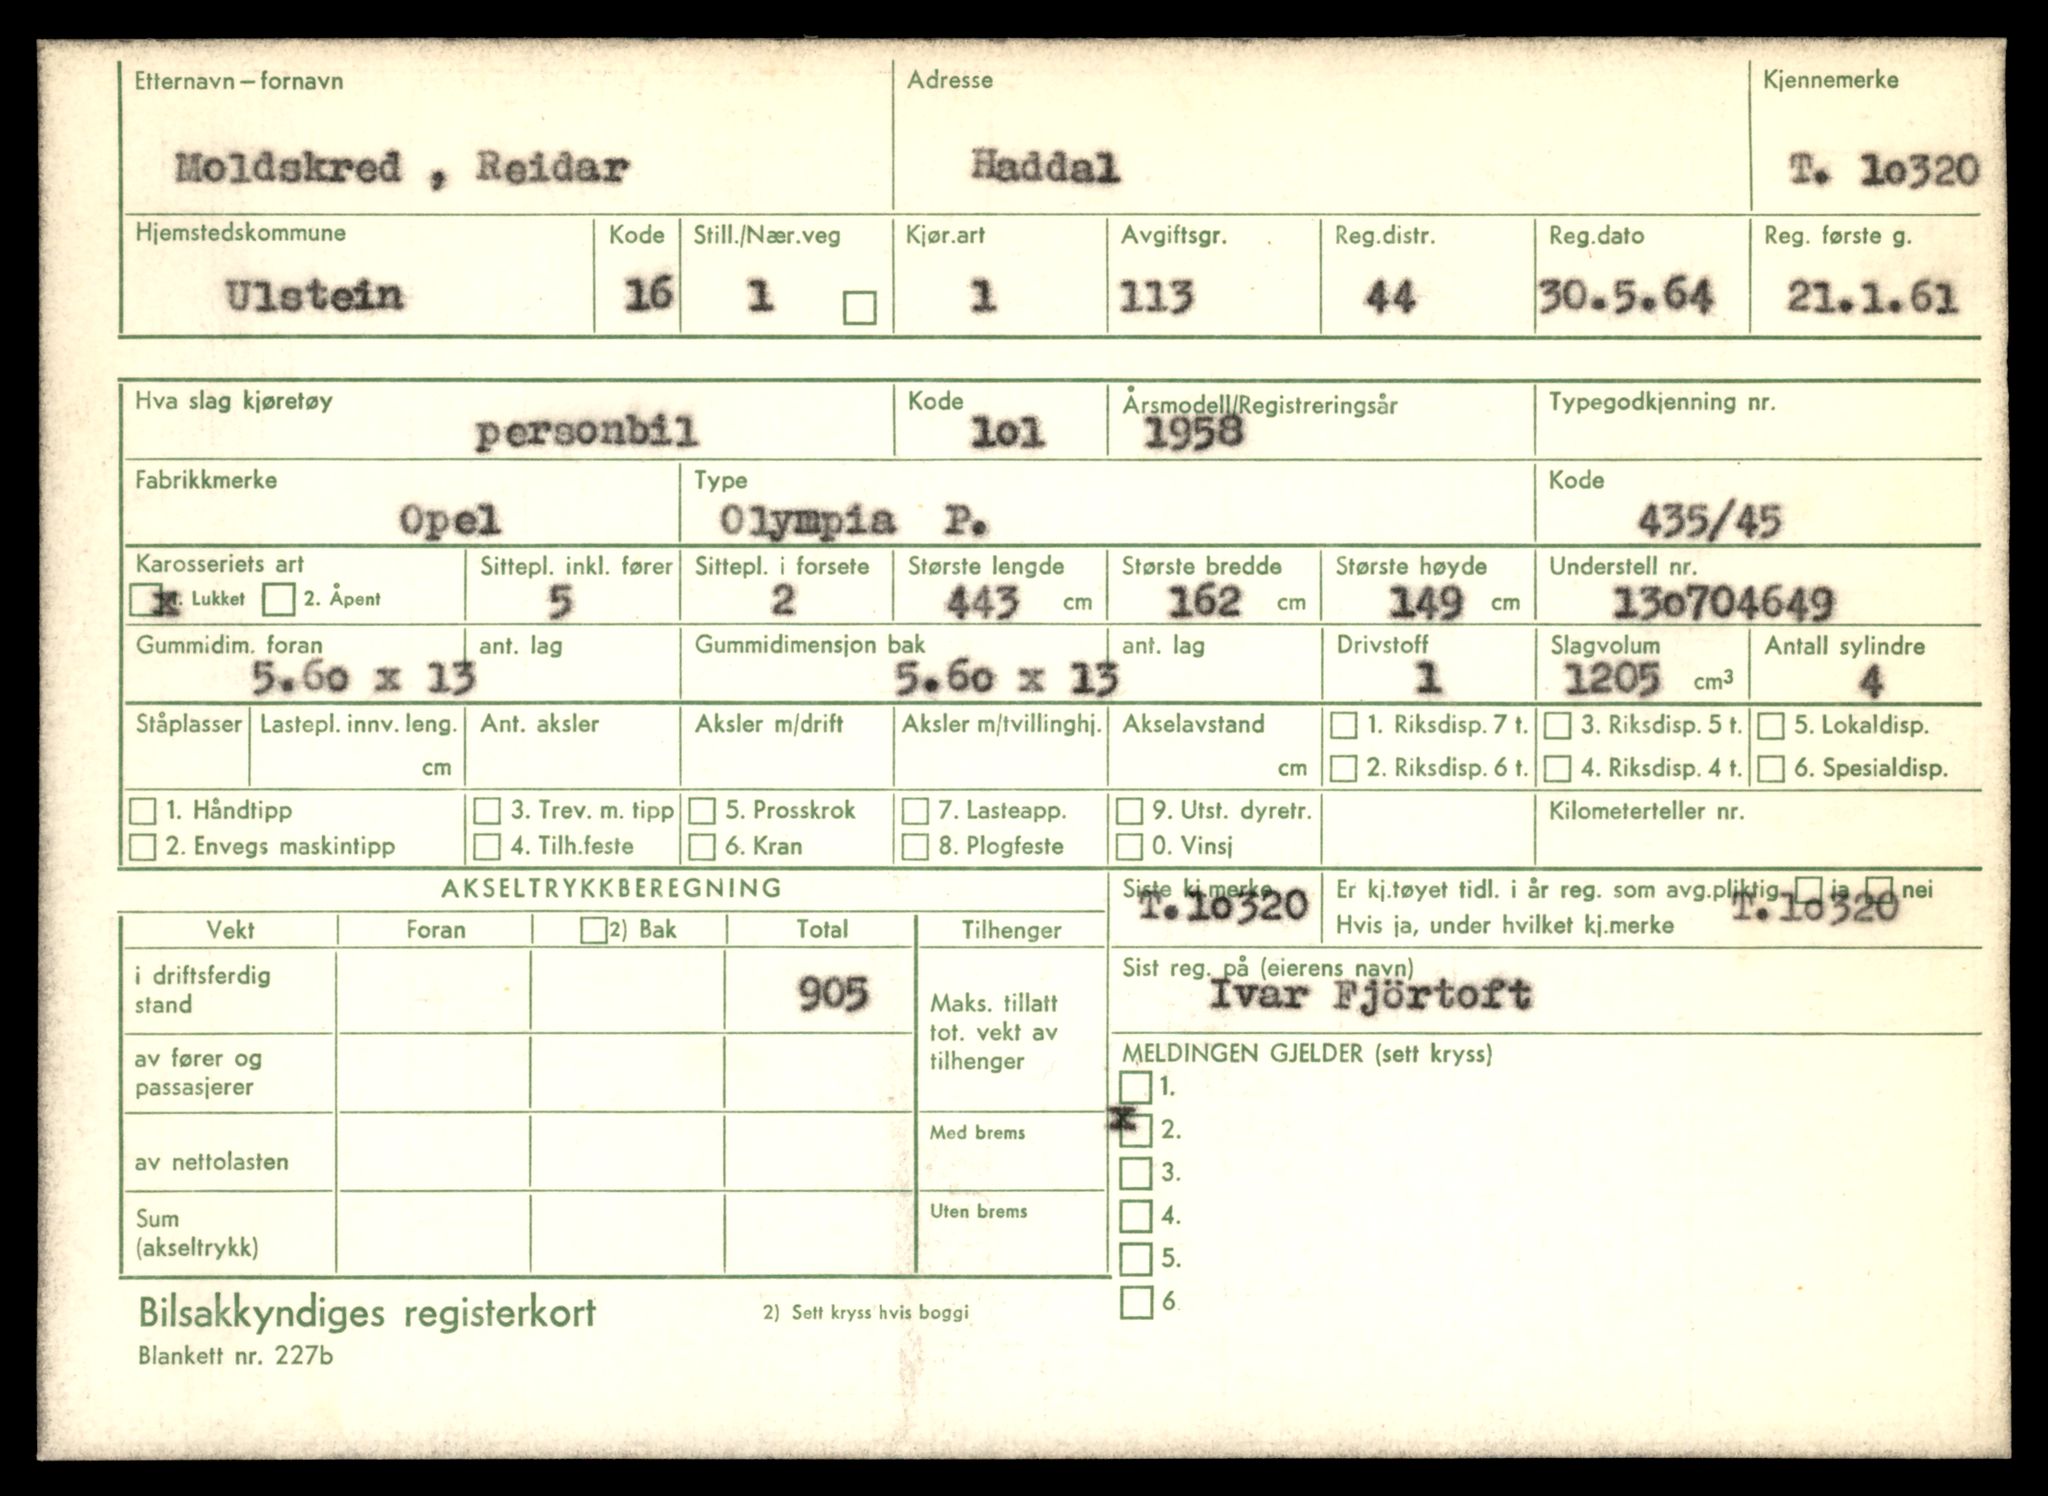 Etternavn – fornavn Adresse Kjennemerke
Moldskred , Reidar Haddal T. 10320
Hjemstedskommune Kode Still./Nær.veg Kjør.art Avgiftsgr. Reg.distr. Reg.dato Reg. første g.
Ulstein 16 1 1 113 44 30.5.64 21.1.61
Hva slag kjøretøy Kode Årsmodell/Registreringsår Typegodkjenning nr.
personbil 101 1958
Fabrikkmerke Type Kode
Opel Olympia P. 435/45
Karosseriets art Sittepl. inkl. fører Sittepl. i forsete Største lengde Største bredde Største høyde Understell nr.
x 1. Lukket 2. Åpent 5 2 443 cm 162 cm 149 cm 130704649
Gummidim. foran ant. lag Gummidimensjon bak ant. lag Drivstoff Slagvolum Antall sylindre
5.60 x 13 5.60 x 13 1 1205 cm³ 4
Ståplasser Lastepl. innv. leng. Ant. aksler Aksler m/drift Aksler m/tvillinghj. Akselavstand 1. Riksdisp. 7 t. 3. Riksdisp. 5 t. 5. Lokaldisp.
cm cm 2. Riksdisp. 6 t. 4. Riksdisp. 4 t. 6. Spesialdisp.
1. Håndtipp 3. Trev. m. tipp 5. Prosskrok 7. Lasteapp. 9. Utst. dyretr. Kilometerteller nr.
2. Envegs maskintipp 4. Tilh.feste 6. Kran 8. Plogfeste 0. Vinsj
AKSELTRYKKBEREGNING Siste kj.merke Er kj.tøyet tidl. i år reg. som avg.pliktig ja nei
T.10320 Hvis ja, under hvilket kj.merke T.10320
Vekt Foran 2) Bak Total Tilhenger
i driftsferdig stand 905 Sist reg. på (eierens navn)
Ivar Fjörtoft
Maks. tillatt
tot. vekt av
tilhenger
av fører og
passasjerer
MELDINGEN GJELDER (sett kryss)
1.
x 2.
Med brems
av nettolasten 3.
Uten brems
Sum
(akseltrykk)
4.
5.
6
Bilsakkyndiges registerkort 2) Sett kryss hvis boggi
Blankett nr. 227b